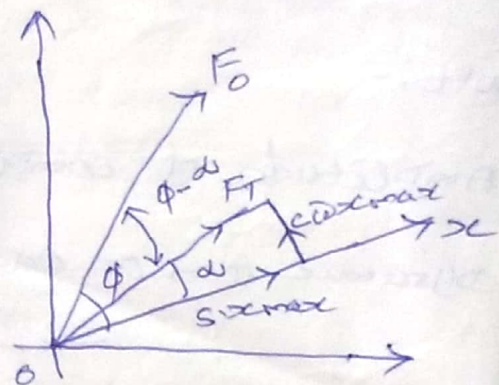 F₀
ϕ-α
F_T
cωx_max
x
ϕ
α
s·x_max
0